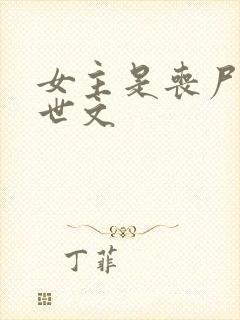 女主是丧尸
世文
丁菲